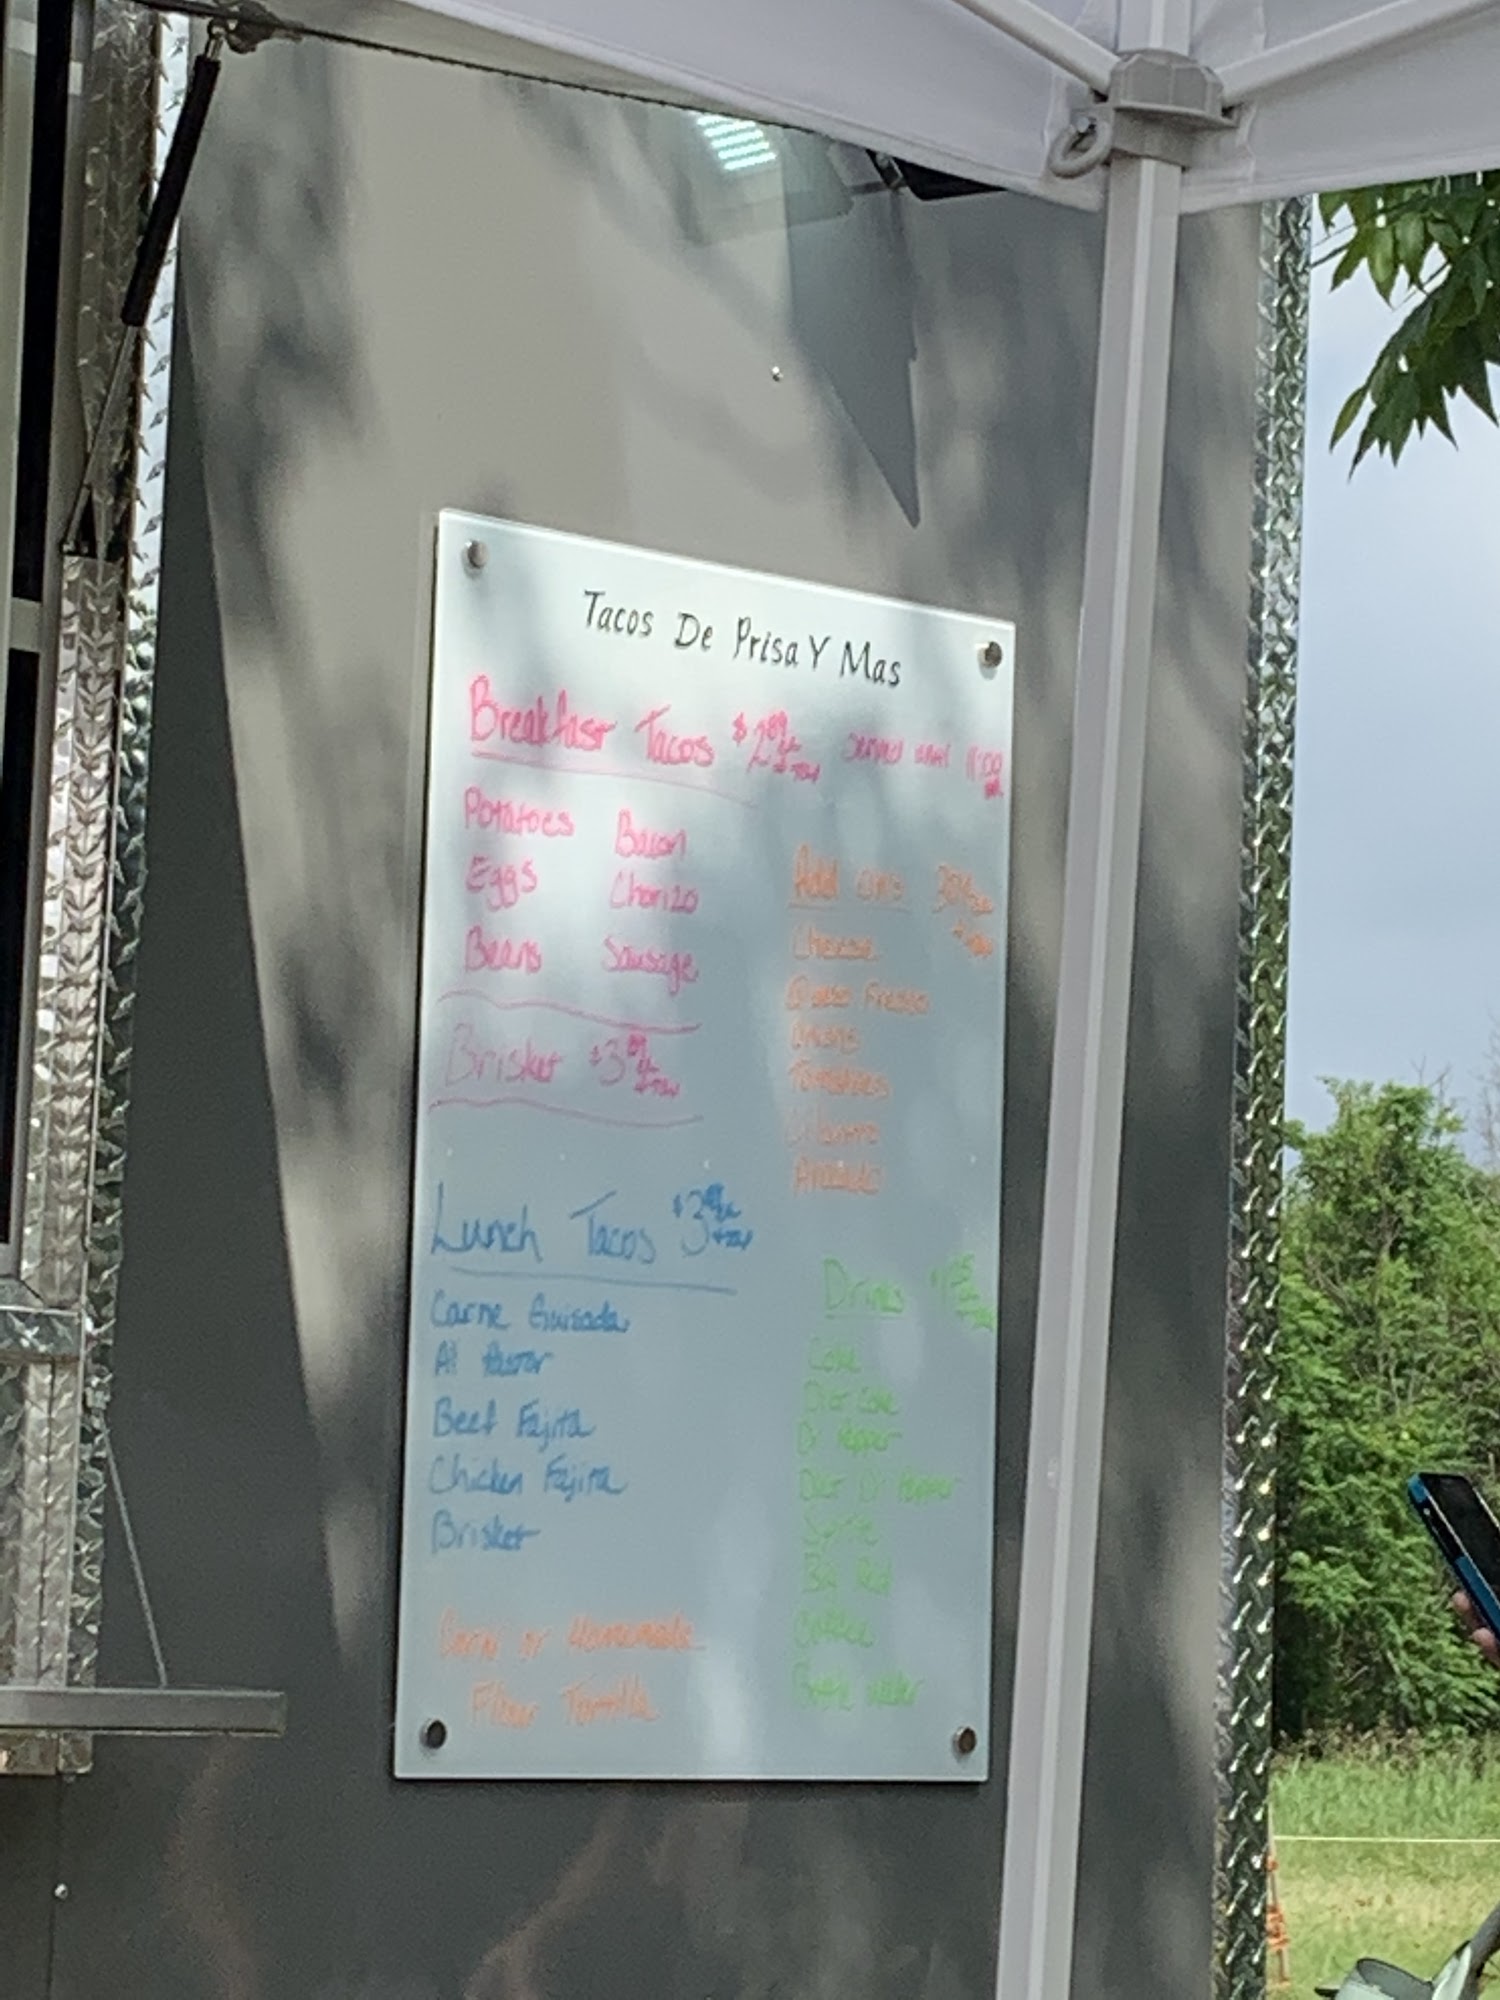 Tacos De Prisa Y Mas
Breakfast Tacos $2.89 + tax served until 11:00
Potatoes Bacon
Eggs Chorizo
Beans Sausage
Brisket $3 + tax
Add ons
+ tax
Cheese
Queso Fresco
Onions
Tomatoes
Cilantro
Avocado
Lunch Tacos $3 + tax
Carne Guisada
Al Pastor
Beef Fajita
Chicken Fajita
Brisket
Corn or Homemade
Flour Tortilla
Drinks
Coke
Diet Coke
Dr Pepper
Diet Dr Pepper
Sprite
Big Red
Coffee
Bottle water